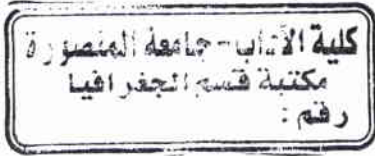 كلية الآداب - جامعة المنصورة
مكتبة قسم الجغرافيا
رقم :